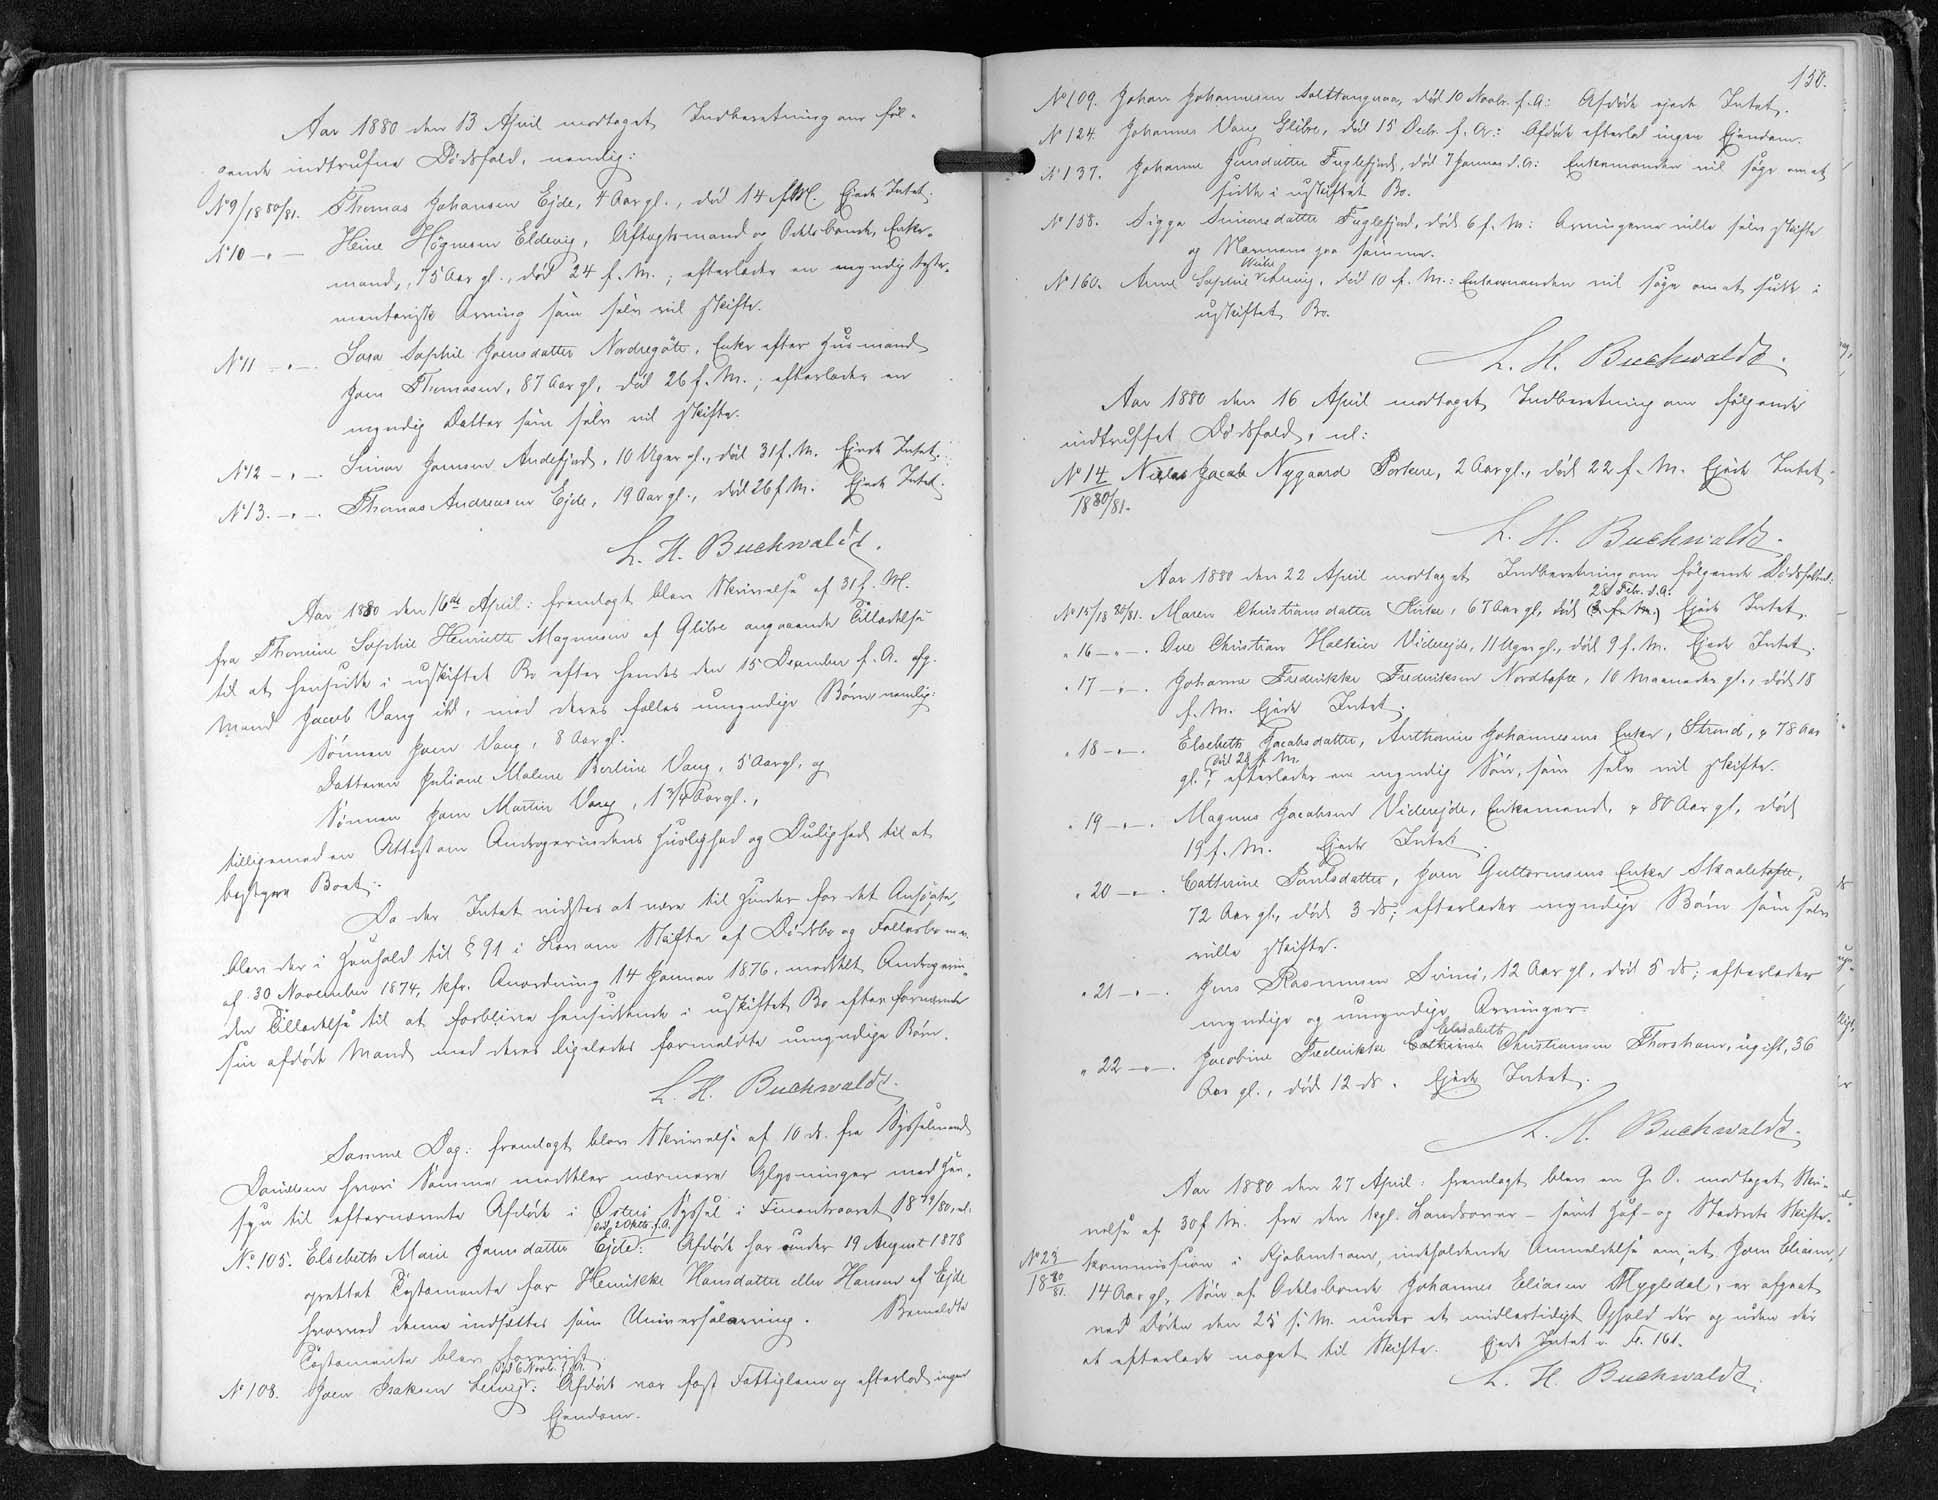 Aar 1880 den 13 April modtaget Indberetning om føl-
gende indtrufne Dødsfald, nemlig:
No 9/1880/81. Thomas Johansen Ejde, 4 Aar gl., død 14 f. M. Ejede Intet.
No 10 -"- Heine Høgnesen Eldevig, Aftægtsmand og Odelsbonde, Enke-
mand, 75 Aar gl., død 24 f. M.; efterlader en myndig testa-
mentarisk Arving som selv vil skifte.
No 11 -"-. Sara Sophie Joensdatter Nordregøte, Enke efter Husmand
Joen Thomasen, 87 Aar gl., død 26 f. M.; efterlader en
myndig Datter som selv vil skifte.
No 12 -"-. Simon Joensen Andefjord, 10 Uger gl., død 31 f. M. Ejede Intet.
No 13. -"-. Thomas Andreasen Ejde, 19 Aar gl., død 26 f. M. Ejede Intet.
L. H. Buchwaldt.
Aar 1880 den 16de April: fremlagt blev Skrivelse af 31 f. M.
fra Thomine Sophie Henriette Magnusen af Glibre angaaende Tilladelse
til at hensidde i uskiftet Bo efter hendes den 15 December f. A. afg.
Mand Jacob Vang ibd. med deres fælles umyndige Børn, nemlig:
Sønnen Joen Vang, 8 Aar gl.
Datteren Juliane Malene Berline Vang, 5 Aar gl, og
Sønnen Joen Martin Vang, 1 3/4 Aar gl.,
tilligemed en Attest om Andragerindens Huslighed og Duelighed til at
bestyre Boet.
Da der Intet vidstes at være til Hinder for det Ansøgte,
blev der i Henhold til § 91 i Lov om Skifte af Dødsbo og Fællesbo m. v.
af 30 November 1874, kfr. Anordning 14 Januar 1876, meddelt Andragerin-
den Tilladelse til at forblive hensiddende i uskiftet Bo efter fornævnte
sin afdøde Mand med deres ligeledes formeldte umyndige Børn.
L. H. Buchwaldt.
Samme Dag: fremlagt blev Skrivelse af 10 ds. fra Sysselmand
Danielsen hvori Samme meddeler nærmere Oplysninger med Hen-
syn til efternævnte Afdøde i Østerø Syssel i Finantsaaret 1879/80, nl.
No. 105. Elsebeth Marie Joensdatter Ejde: Afdøde har under 19 August 1878
død 2 Oktb. f. A.
oprettet Testamente for Henrikke Hansdatter eller Hansen af Ejde
hvorved denne indsættes som Universalarving. Bemeldte
Testamente blev forevist.
død 6 Novb. f. A.
No 108. Joen Isaksen Lervig: Afdøde var fast Fattiglem og efterlod ingen
Ejendom.
150.
No 109. Johan Johannesen Saltangaraa, død 10 Novb. f. A: Afdøde ejede Intet.
No 124. Johannes Vang Glibre, død 15 Decb. f. A.: Afdøde efterlod ingen Ejendom.
No 137. Johanne Jensdatter Fuglefjord, død 7 Januar d. A: Enkemanden vil søge om at
sidde i uskiftet Bo.
No 158. Sigga Simonsdatter Fuglefjord, død 6 f. M: Arvingerne ville selv skifte
og
No 160. Anne Sophie Lervig, død 10 f. M.: Enkemanden vil søge om at sidde i
uskiftet Bo.
L. H. Buchwaldt.
Aar 1880 den 16 April modtaget Indberetning om følgende
indtruffet Dødsfald, nl:
No 14 Niclas Jacob Nygaard Porkere, 2 Aar gl., død 22 f. M. Ejede Intet.
1880/81.
L. H. Buchwaldt.
Aar 1880 den 22 April modtaget Indberetning om følgende Dødsfald:
28 Feb. d. A.
No 15/1880/81. Maren Christiansdatter Kirke, 67 Aar gl, død (3 f. M.) Ejede Intet.
" 16 -"-. Ove Christian Halkier Viderejde, 11 Uger gl., død 9 f. M. Ejede Intet.
" 17 -"-. Johanne Frederikke Frederiksen Nordtofte, 10 Maaneder gl., død 18
f. M. Ejede Intet.
" 18 -"-. Elsebeth Jacobsdatter, Anthonius Johannesens Enke, Strend, 78 Aar
død 28 f. M.
gl.; efterlader en myndig Søn, som selv vil skifte.
" 19 -"-. Magnus Jacobsen Viderejde, Enkemand, 80 Aar gl, død
19 f. M. Ejede Intet.
" 20 -"-. Cathrine Poulsdatter, Joen Guttormsens Enke Skaaletofte,
72 Aar gl, død 3 ds; efterlader myndige Børn som selv
ville skifte.
" 21 -"-. Jens Rasmussen Svinø, 12 Aar gl, død 5 ds; efterlader
myndige og umyndige Arvinger.
Elisabeth
" 22 -"-. Jacobine Frederikke Cathrine Christiansen Thorshavn, ugift, 36
Aar gl., død 12 ds. Ejede Intet.
L. H. Buchwaldt.
Aar 1880 den 27 April: fremlagt blev en G. D. modtaget Skri-
velse af 30 f. M. fra den kgl. Landsover- samt Hof- og Stadsrets Skifte-
No 23 kommission i Kjøbenhavn, indholdende Anmeldelse om, at Joen Eliasen,
1880/81. 14 Aar gl, Søn af Odelsbonde Johannes Eliasen Mygledal, er afgaaet
ved Døden den 25 s. M. under et midlertidigt Ophold der og uden der
at efterlade noget til Skifte. Ejede Intet v. Fo. 161.
L. H. Buchwaldt.